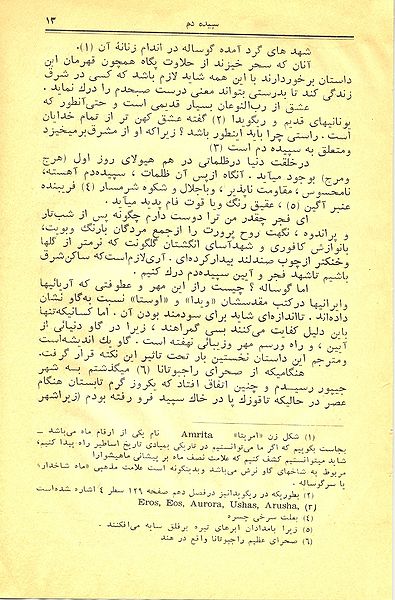 سپیده دم ۱۳
شهد های گرد آمده گوساله در اندام زنانهٔ آن (۱).
آنان که سحر خیزند از حلاوت پگاه همچون قهرمان این
داستان برخوردارند با این همه شاید لازم باشد که کسی در شرق
زندگی کند تا بدرستی بتواند معنی درست صبحدم را درك نماید .
عشق از رب‌النوعان بسیار قدیمی است و حتی‌آنطور که
یونانیهای قدیم و ریگویدا (۲) گفته عشق کهن تر از تمام خدایان
است . راستی چرا باید اینطور باشد ؟ زیراکه او از مشرق‌برمیخیزد
ومتعلق به سپیده دم است (۳)
درخلقت دنیا درظلماتی در هم هیولای روز اول (هرج
ومرج) بوجود میآید . آنگاه ازپس آن ظلمات ، سپیده‌دم آهسته،
نامحسوس ، مقاومت ناپذیر ، وباجلال و شکوه شرمسار (۴) فریبنده
عنبر آگین (۵) ، عقیق رنگ ویا قوت فام پدید میآید .
ای فجر چقدر من ترا دوست دارم چگونه پس از شب‌تار
و براننده ، نکهت روح پرورت را ازجمع مردگان بارنگ وبویت،
بانوازش کافوری و شهدآسای انگشتان گلگونت که نرمتر از گلها
وخنکتر ازچوب صندلند بیدارکرده‌ای . آری‌لازم‌است‌که ساکن‌شرق
باشیم تاشهد فجر و آیین سپیده‌دم درك کنیم .
اما گوساله ؟ چیست راز این مهر و عطوفتی که آریائیها
وایرانیها درکتب مقدسشان «ویدا» و «اوستا» نسبت به‌گاو نشان
داده‌اند . تااندازه‌ای شاید برای سودمند بودن آن . اما کسانیکه‌تنها
باین دلیل کفایت می‌کنند بسی گمراهند ، زیرا در گاو دنیائی از
آیین ، و راه ورسم مهر وزیبائی نهفته است . گاو یك اندیشه‌است
ومترجم این داستان نخستین بار تحت تاثیر این نکته قرار گرفت.
هنگامیکه از صحرای راجپوتانا (۶) میگذشتم به شهر
جیپور رسیدم و چنین اتفاق افتاد که یکروز گرم تابستان هنگام
عصر در حالیکه تاقوزك پا در خاك سپید فرو رفته بودم (زیراشهر
(۱) شکل زن «آمریتا» Amrita نام یکی از ارقام ماه می‌باشد –
بجاست بگوییم که اگر ما می‌توانستیم در تاریکی بنیادی تاریخ اساطیر راه پیدا کنیم،
شاید میتوانستیم کشف کنیم که علامت نصف ماه بر پیشانی ماهیشوارا
مربوط به شاخهای گاو نرش می‌باشد وبدینگونه است علامت مذهبی «ماه شاخدار»
با سرگوساله .
(۲) بطوریکه در ریگویدانیز درفصل دهم صفحه ۱۲۹ سطر ۴ اشاره شده‌است
(۳) Eros, Eos, Aurora, Ushas, Arusha,
(۴) بعلت سرخی چهره
(۵) زیرا بامدادان ابرهای تیره برفلق سایه می‌افکنند .
(۶) صحرای عظیم راجپوتانا واقع در هند